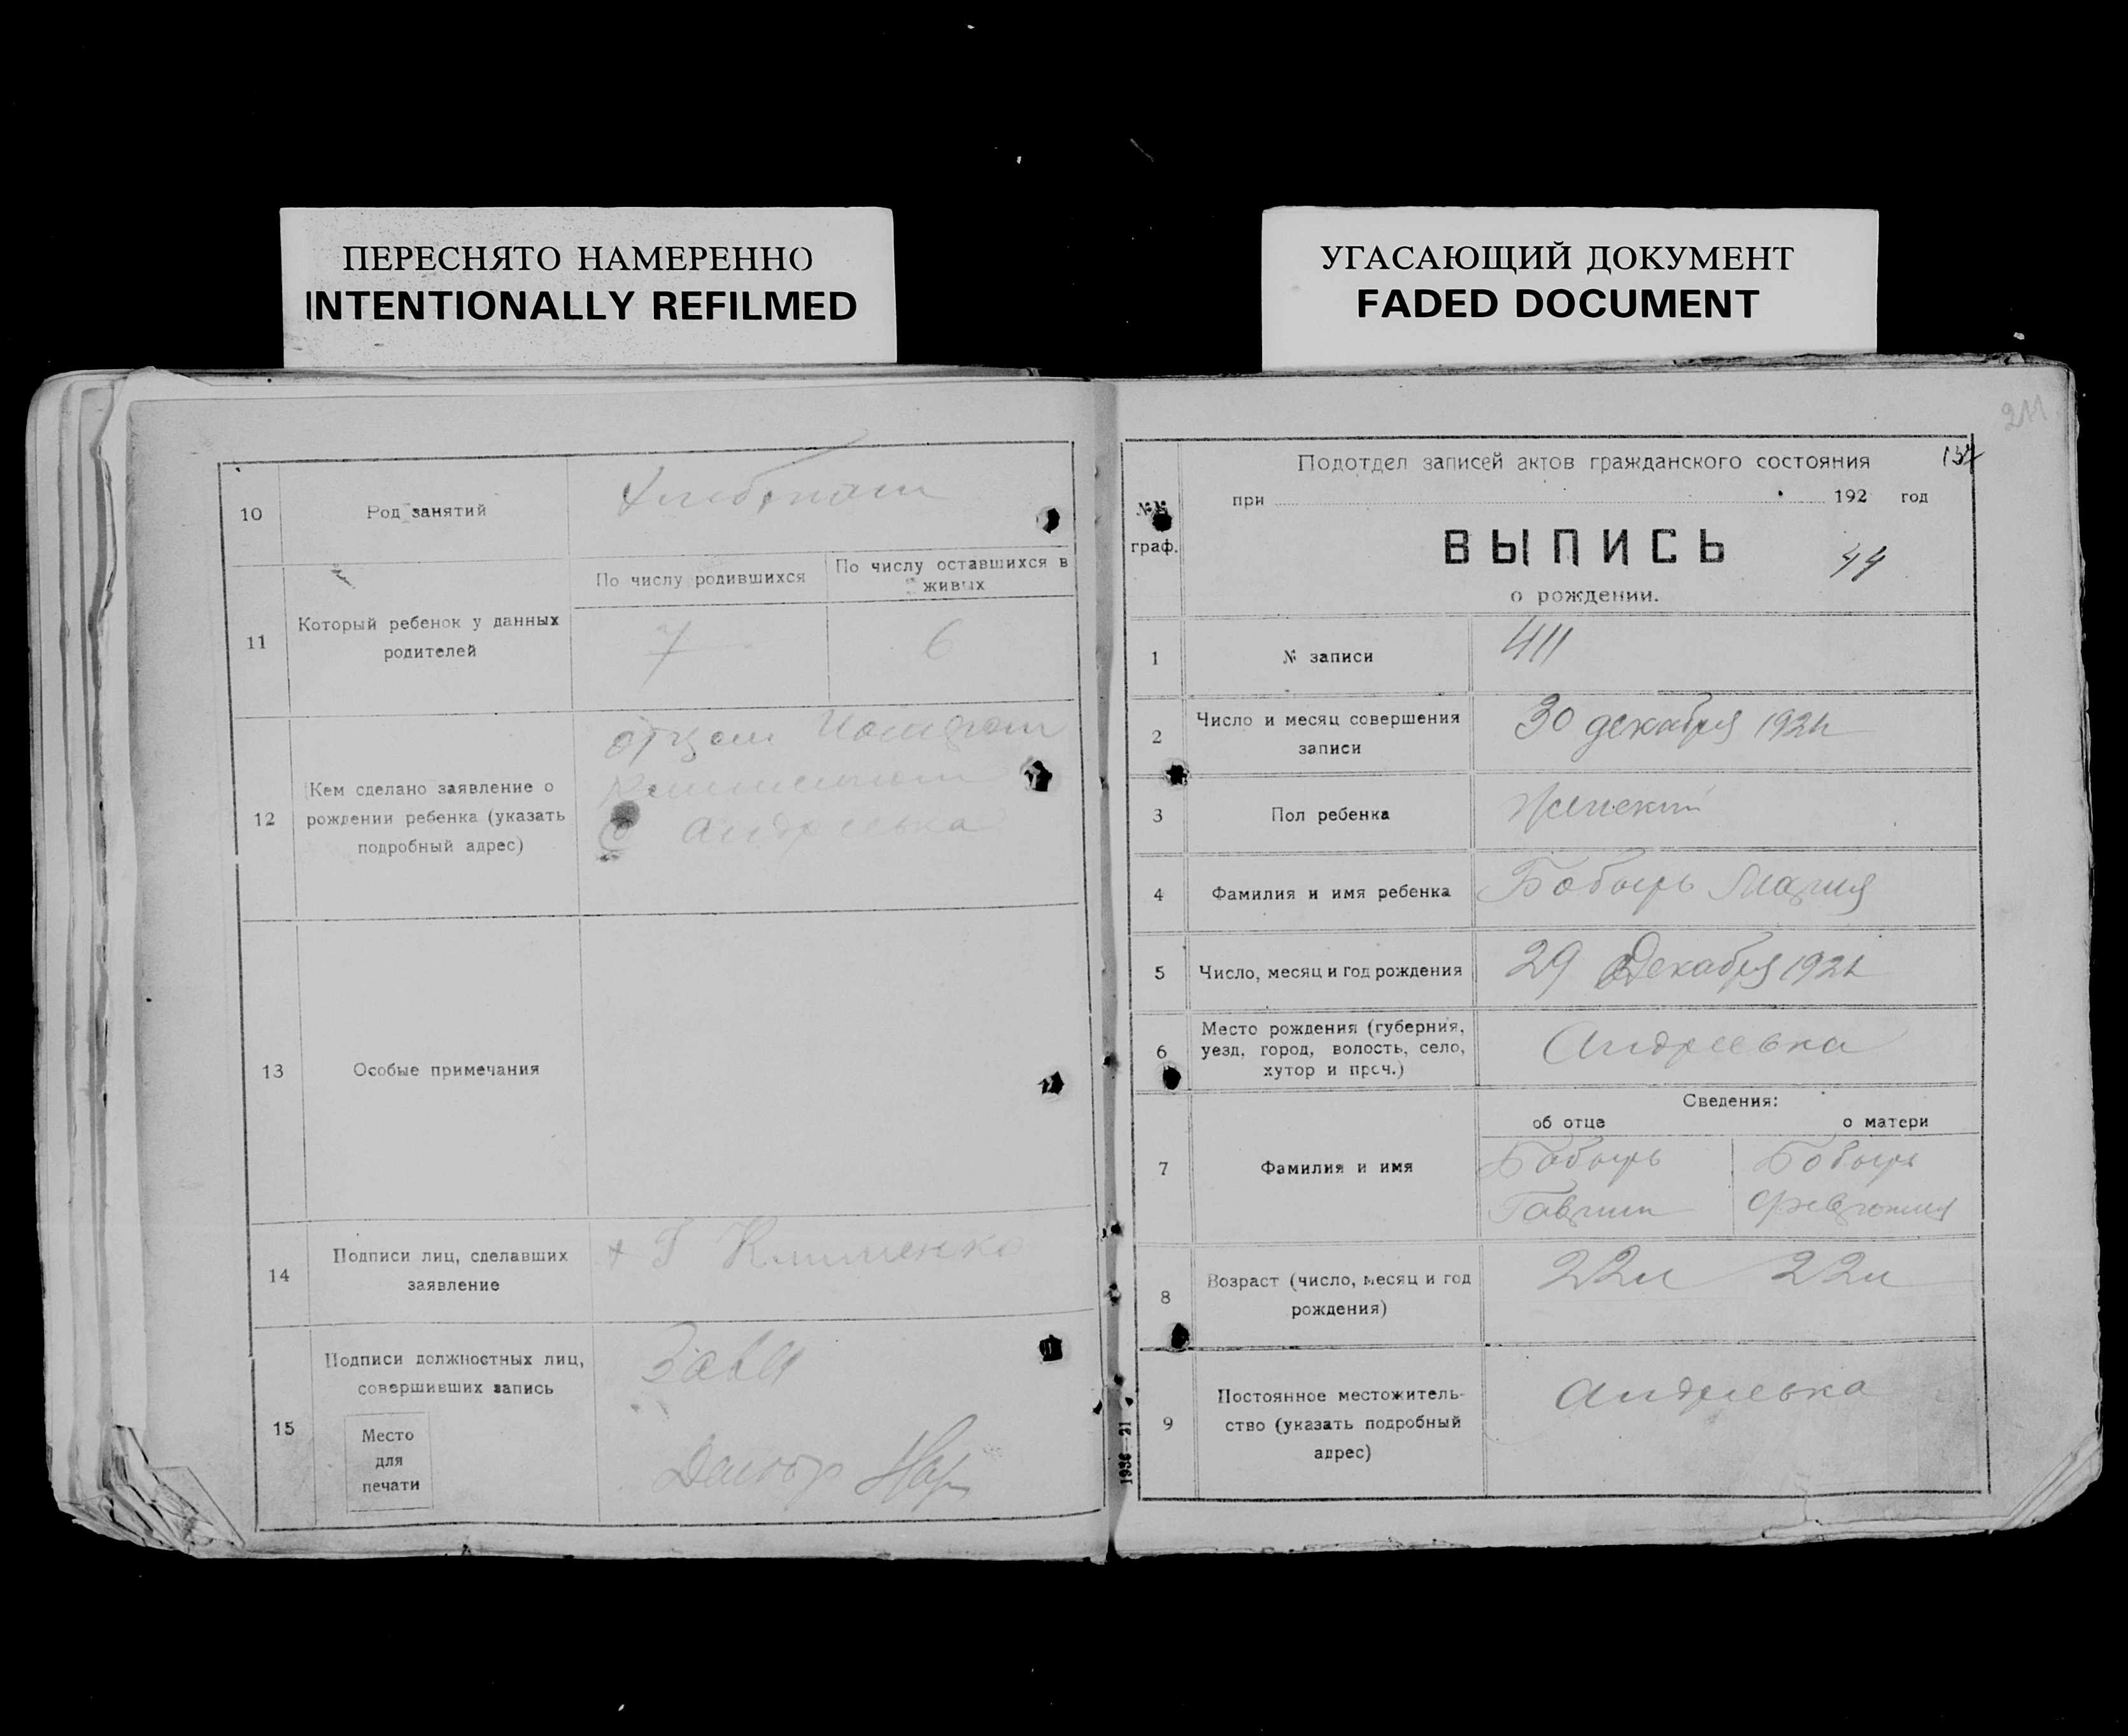 ПЕРЕСНЯТО НАМЕРЕННО
INTENTIONALLY REFILMED
УГАСАЮЩИЙ ДОКУМЕНТ
FADED DOCUMENT
10
Род занятий
11
Который ребенок у данных
родителей
По числу родившихся
По числу оставшихся в
живых
7
6
12
Кем сделано заявление о
рождении ребенка (указать
подробный адрес)
отцом
Андреевка
13
Особые примечания
14
Подписи лиц, сделавших
заявление
+ Г Клименко
15
Подписи должностных лиц,
совершивших запись
Место
для
печати
211
137
№№
граф.
Подотдел записей актов гражданского состояния
при 192 год
ВЫПИСЬ
44
о рождении.
1
№ записи
411
2
Число и месяц совершения
записи
30 декабря 192
3
Пол ребенка
Женский
4
Фамилия и имя ребенка
Бобырь Мария
5
Число, месяц и год рождения
29 Декабря 192
6
Место рождения (губерния,
уезд, город, волость, село,
хутор и проч.)
Андреевка
Сведения:
об отце
о матери
7
Фамилия и имя
Бобырь
Бобырь
Гаврил
8
Возраст (число, месяц и год
рождения)
22л 22л
9
Постоянное местожитель-
ство (указать подробный
адрес)
Андреевка
1936—21